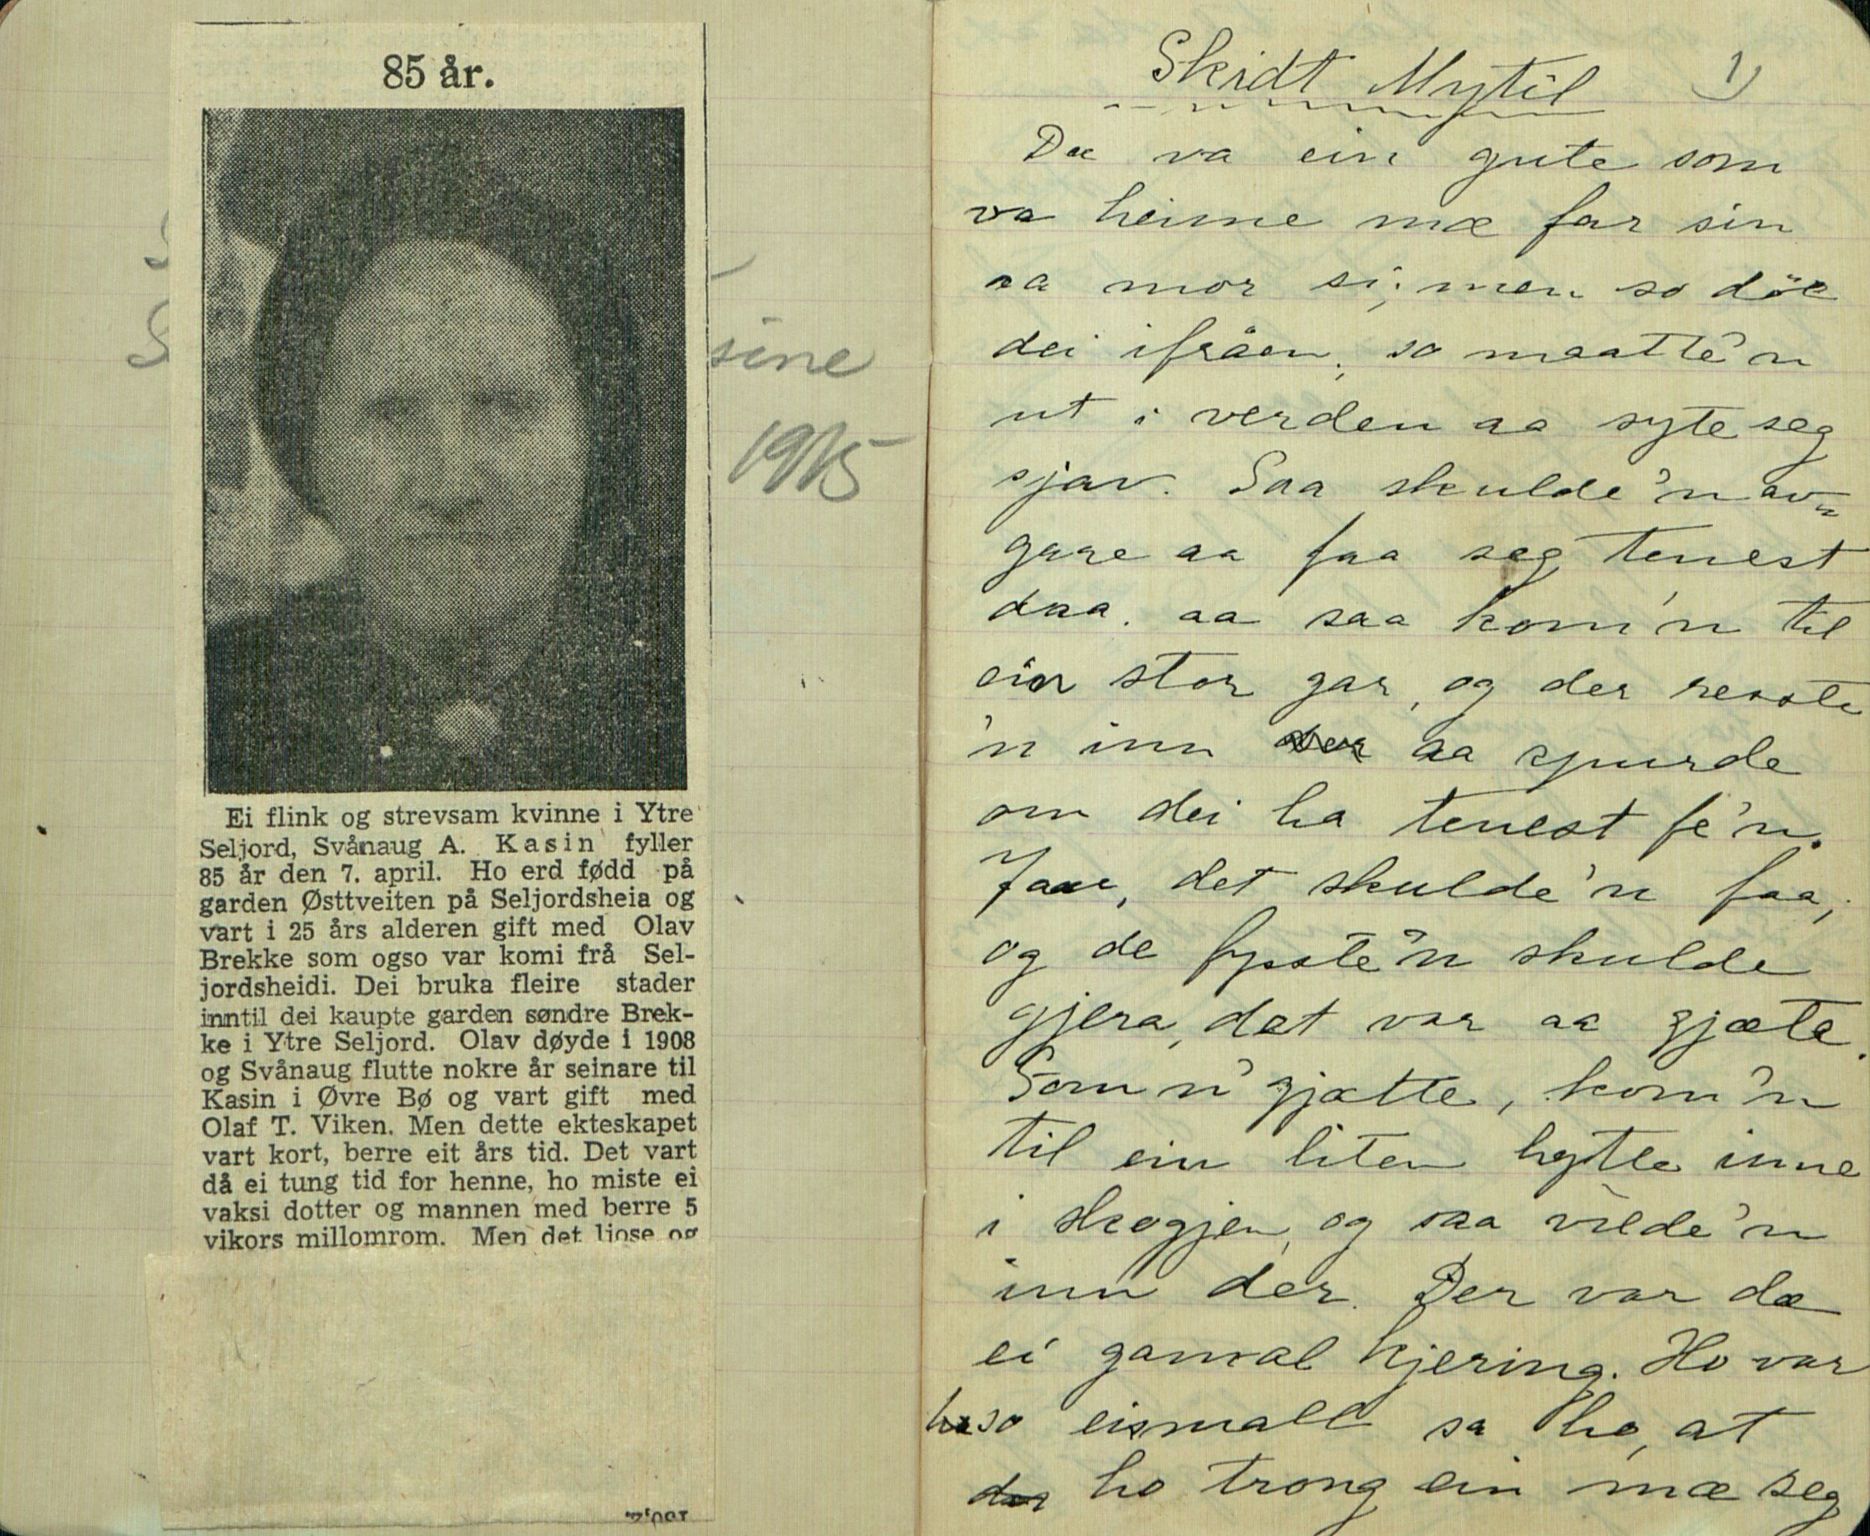 85 år.
Ei flink og strevsam kvinne i Ytre
Seljord, Svånaug A. Kasin fyller
85 år den 7. april. Ho erd fødd på
garden Østtveiten på Seljordsheia og
vart i 25 års alderen gift med Olav
Brekke som ogso var komi frå Sel-
jordsheidi. Dei bruka fleire stader
inntil dei kaupte garden søndre Brek-
ke i Ytre Seljord. Olav døyde i 1908
og Svånaug flutte nokre år seinare til
Kasin i Øvre Bø og vart gift med
Olaf T. Viken. Men dette ekteskapet
vart kort, berre eit års tid. Det vart
då ei tung tid for henne, ho miste ei
vaksi dotter og mannen med berre 5
vikors millomrom. Men det ljose og
sine
1915
Skidt Mytil 1)
Dæ va ein gute som
va heime mæ far sin
aa mor si; men so döe
dei ifråen, so maatte'n
ut i verden aa syte seg
sjav. Saa skulde'n av-
gare aa faa seg tenest
daa. aa saa kom'n til
ein stor gar, og der reiste
'n inn aa spurde
om dei ha tenest fe'n.
Jaae, det skulde'n faa,
og de fyste'n skulde
gjera, det var aa gjæte.
Som n' gjætte, kom'n
til ein liten hytte inne
i skogjen, og saa vilde'n
inn der. Der var dæ
ei gamal kjering. Ho var
so eismall sa ho, at
ho trong ein mæ seg